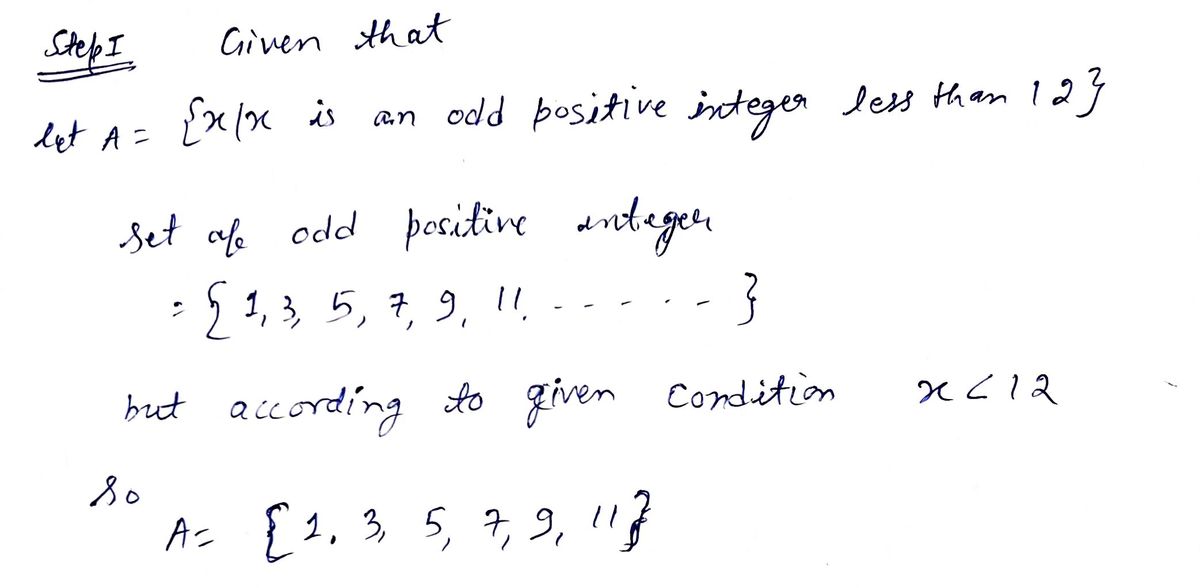 Step I Given that
let A = {x/x is an odd positive integer less than 12}
set of odd positive integer
= { 1, 3, 5, 7, 9, 11, ------ }
but according to given condition x < 12
so
A = { 1, 3, 5, 7, 9, 11}